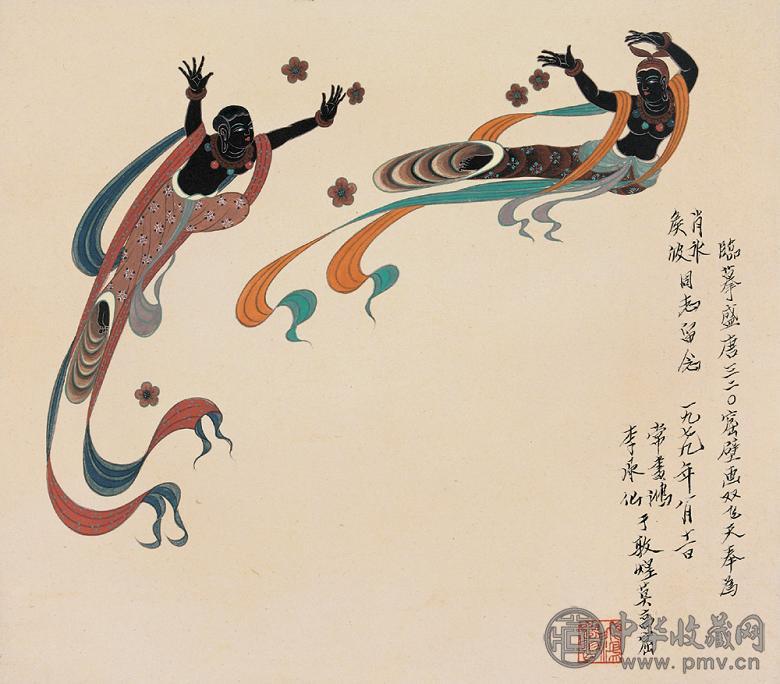 臨摹盛唐三二〇窟壁画双飞天奉為
肖氷
侯波
同志留念 一九七九年八月
常書鴻
李承仙
于敦煌莫高窟
中华收藏网
www.pmv.cn